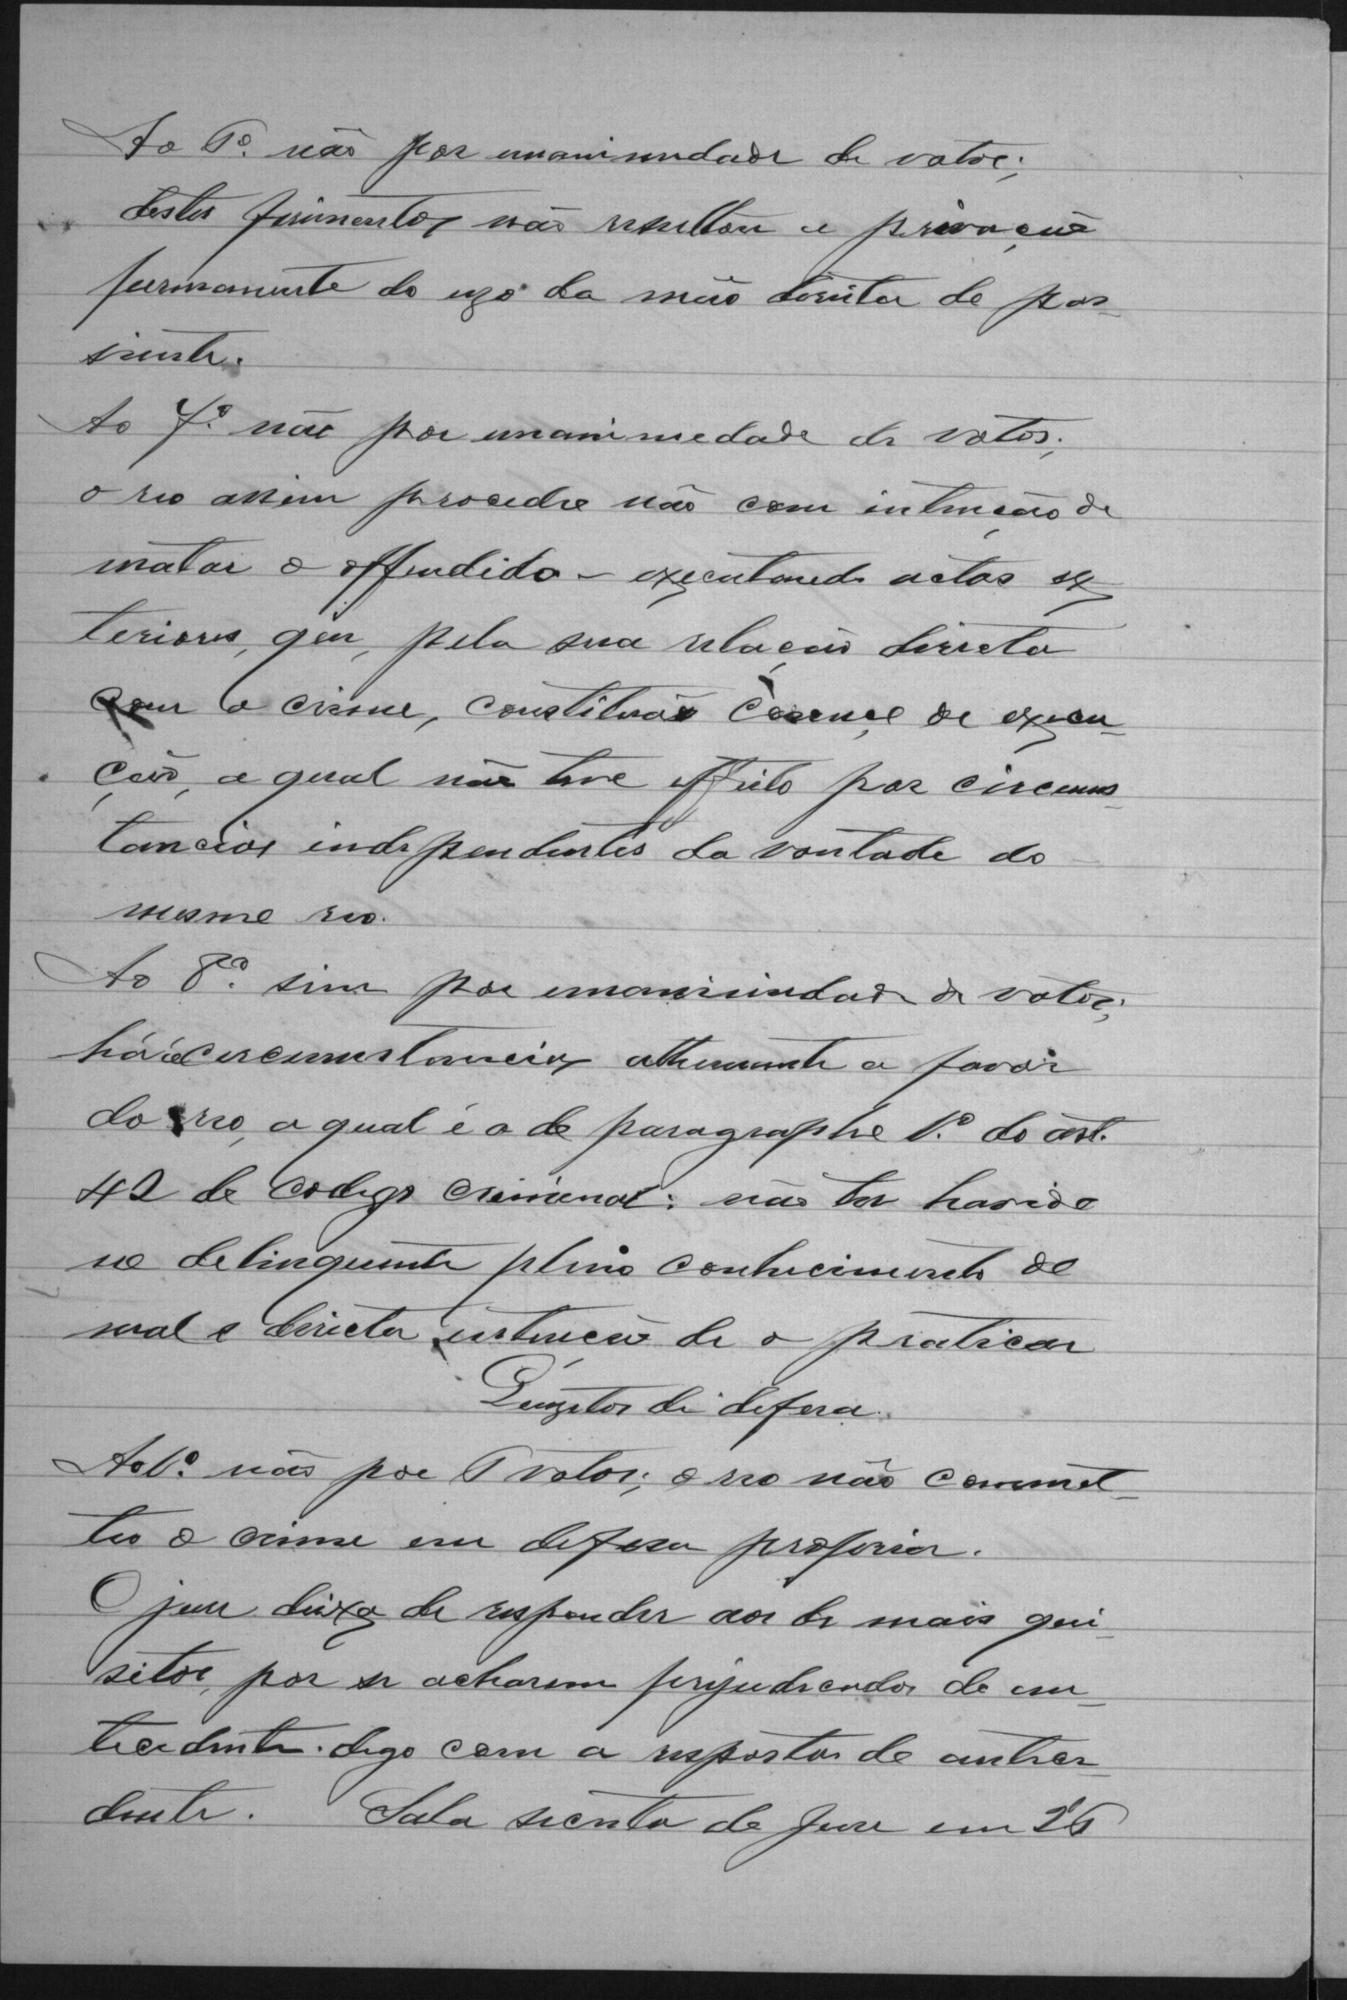 Ao 6º. não por unanimidade de votos;
destes ferimentos não resultou a privação
permanente do uzo da mão direita do pa-
ciente.
Ao 7º. não por unanimidade de votos;
o reo assim procedeo não com intenção de
matar o offendido - executando actos ex-
teriores, que, pela sua relação directa
com o crime, constituão começo de execu-
ção, a qual não teve effeito por circums-
tancias independentes da vontade do
mesmo reo.
Ao 8º. sim por unanimidade de votos;
há a circumstancia attenuante a favor
do reo, a qual é a do paragrapho 1º. do art.
42 do Codigo Criminal: não ter havido
no delinquente pleno conhecimento do
mal e directa intenção de o praticar
Quizitos de defeza.
Ao 1º. não por 6 votos; o reo não commet-
teo o crime em defeza propria.
O jury deixa de responder aos de mais qui-
sitos, por se acharem prejudicados do an-
tecedente. digo com a resposta do antece-
dente. Sala secreta do Jury em 26